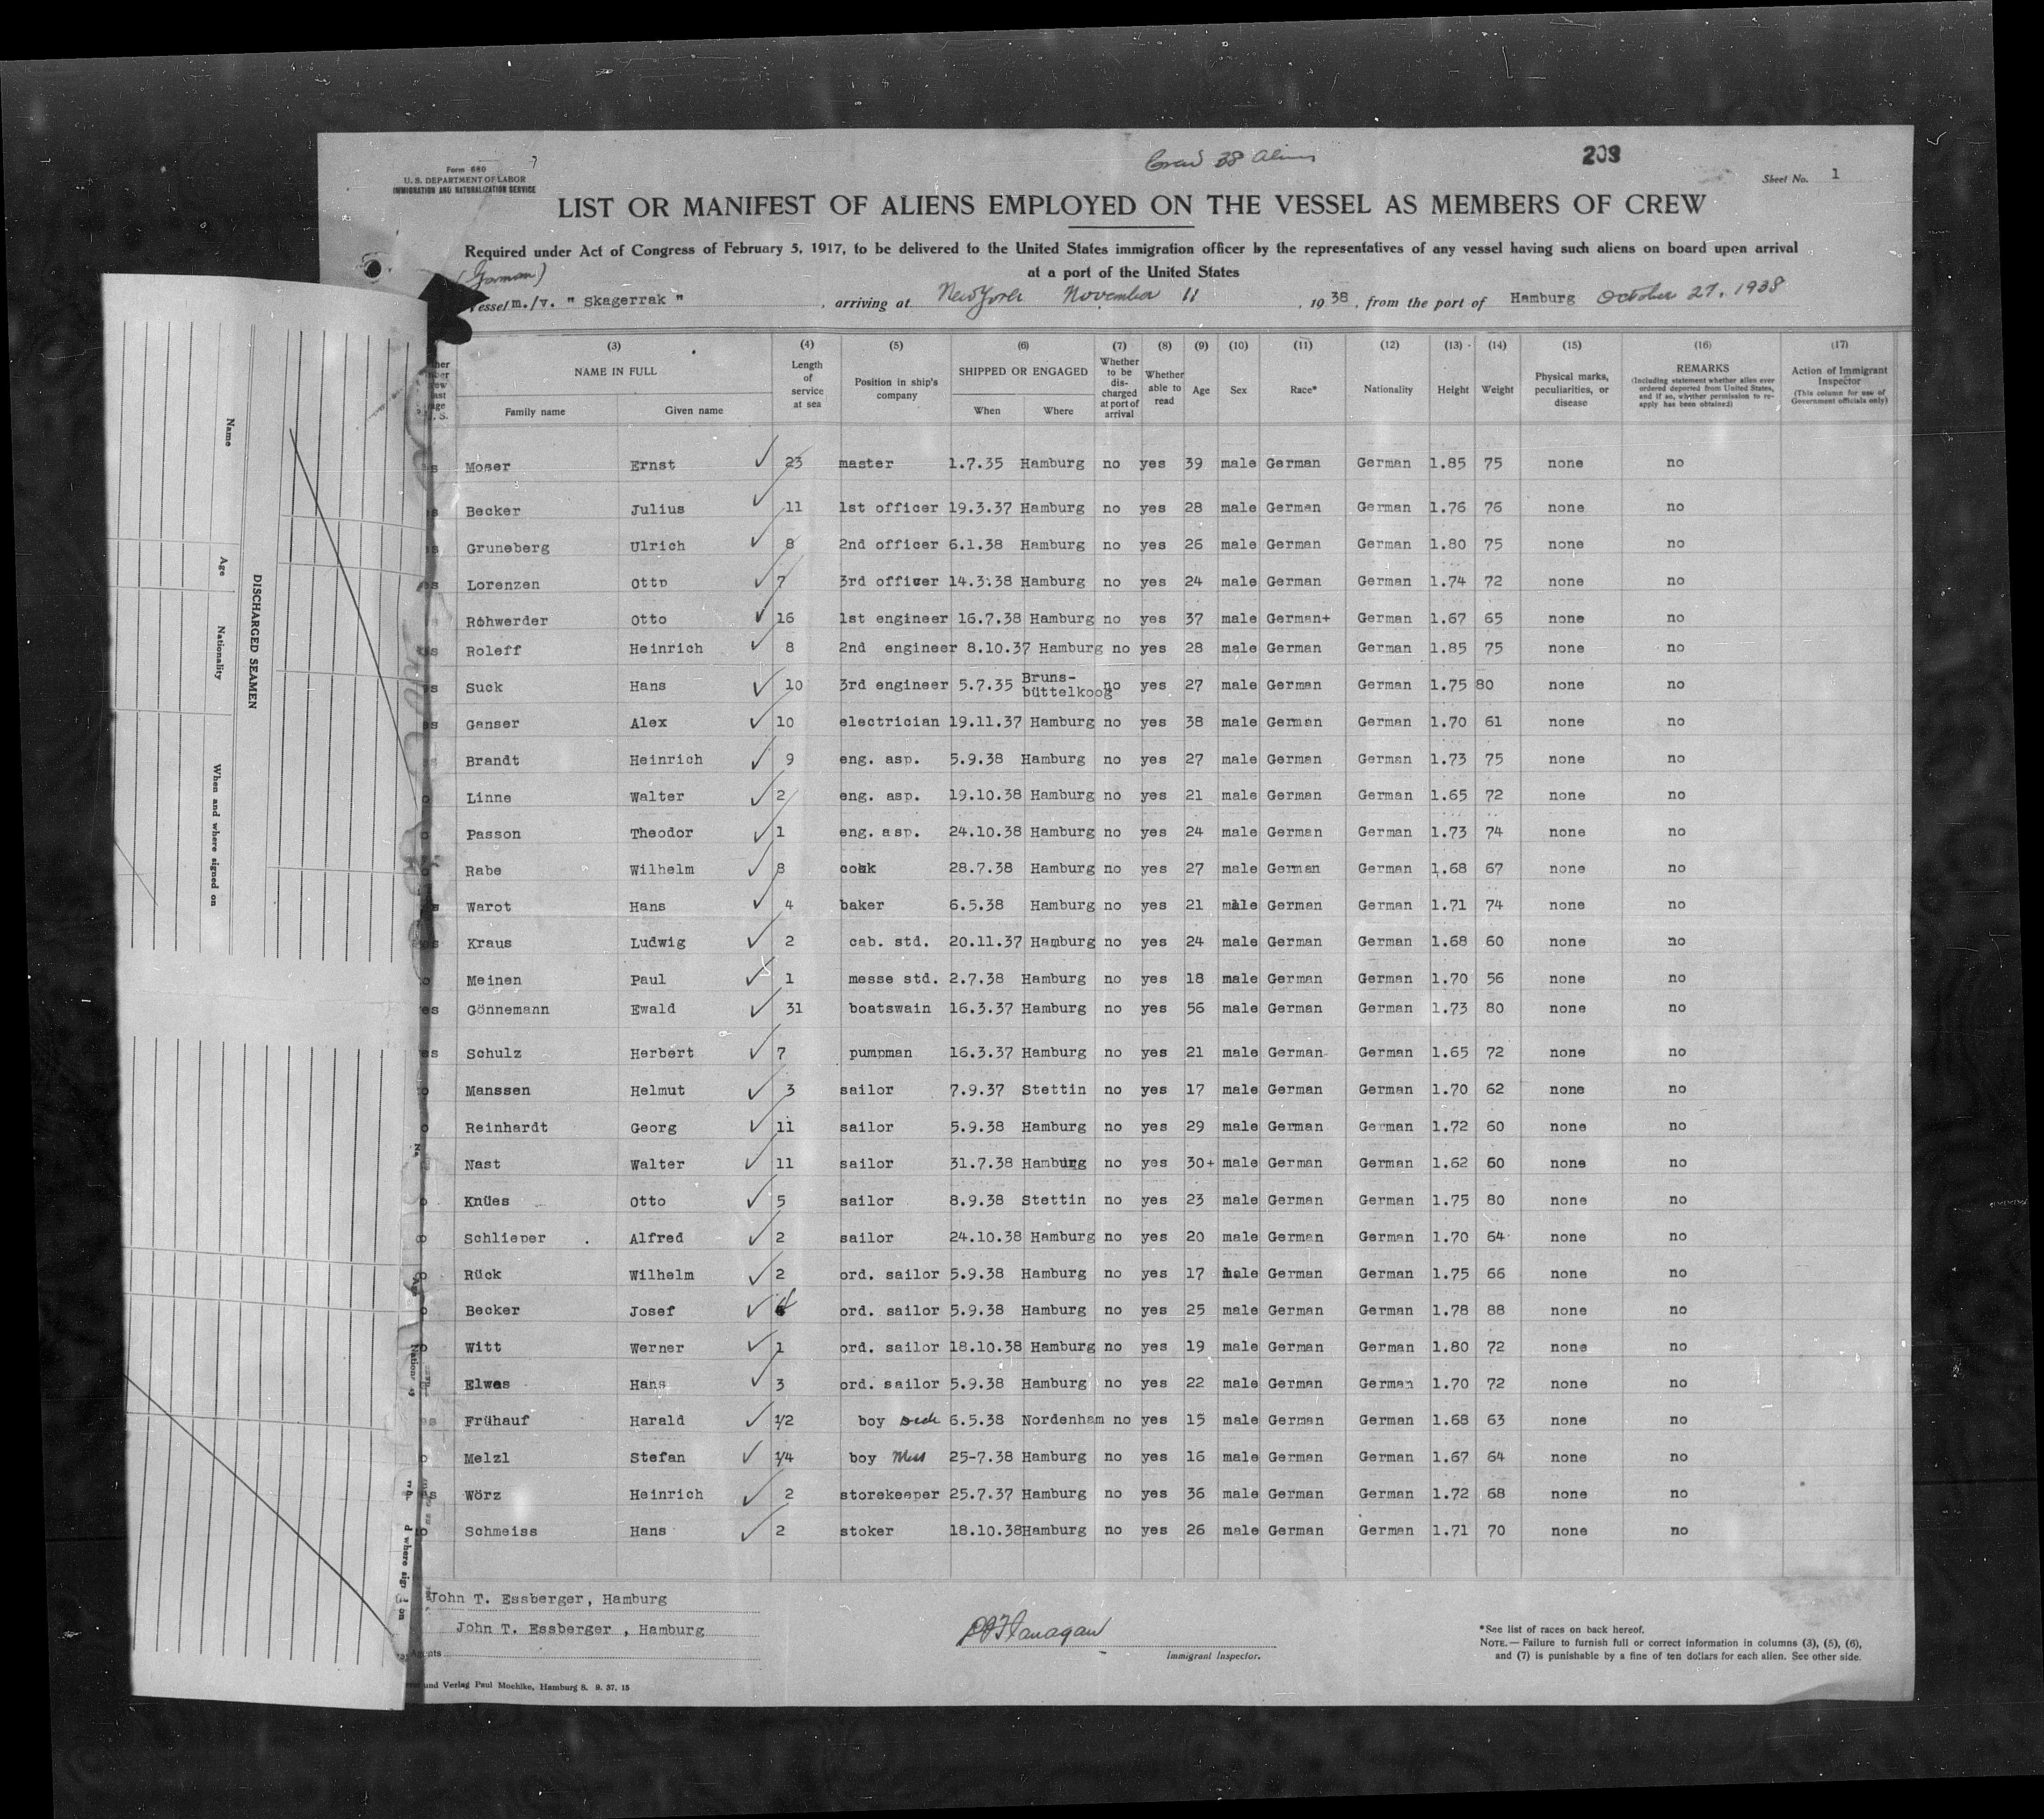 Form 680
U. S. DEPARTMENT OF LABOR
IMMIGRATION AND NATURALIZATION SERVICE
Crew 38 Aliens
203
Sheet No. 1
LIST OR MANIFEST OF ALIENS EMPLOYED ON THE VESSEL AS MEMBERS OF CREW
Required under Act of Congress of February 5, 1917, to be delivered to the United States immigration officer by the representatives of any vessel having such aliens on board upon arrival
at a port of the United States
(German)
Vessel m./v. " Skagerrak " , arriving at New York November 11 , 1938 , from the port of Hamburg October 27, 1938
(3) (4) (5) (6) (7) (8) (9) (10) (11) (12) (13) (14) (15) (16) (17)
NAME IN FULL Length of service at sea Position in ship's company SHIPPED OR ENGAGED Whether to be discharged at port of arrival Whether able to read Age Sex Race* Nationality Height Weight Physical marks, peculiarities, or disease REMARKS (Including statement whether alien ever ordered deported from United States, and if so, whether permission to re-apply has been obtained) Action of Immigrant Inspector (This column for use of Government officials only)
Family name Given name When Where
Moser Ernst 23 master 1.7.35 Hamburg no yes 39 male German German 1.85 75 none no
Becker Julius 11 1st officer 19.3.37 Hamburg no yes 28 male German German 1.76 76 none no
Gruneberg Ulrich 8 2nd officer 6.1.38 Hamburg no yes 26 male German German 1.80 75 none no
Lorenzen Otto 7 3rd officer 14.3.38 Hamburg no yes 24 male German German 1.74 72 none no
Rohwerder Otto 16 1st engineer 16.7.38 Hamburg no yes 37 male German+ German 1.67 65 none no
Roleff Heinrich 8 2nd engineer 8.10.37 Hamburg no yes 28 male German German 1.85 75 none no
Suck Hans 10 3rd engineer 5.7.35 Bruns-büttelkoog no yes 27 male German German 1.75 80 none no
Ganser Alex 10 electrician 19.11.37 Hamburg no yes 38 male German German 1.70 61 none no
Brandt Heinrich 9 eng. asp. 5.9.38 Hamburg no yes 27 male German German 1.73 75 none no
Linne Walter 2 eng. asp. 19.10.38 Hamburg no yes 21 male German German 1.65 72 none no
Passon Theodor 1 eng. asp. 24.10.38 Hamburg no yes 24 male German German 1.73 74 none no
Rabe Wilhelm 8 cook 28.7.38 Hamburg no yes 27 male German German 1.68 67 none no
Warot Hans 4 baker 6.5.38 Hamburg no yes 21 male German German 1.71 74 none no
Kraus Ludwig 2 cab. std. 20.11.37 Hamburg no yes 24 male German German 1.68 60 none no
Meinen Paul 1 messe std. 2.7.38 Hamburg no yes 18 male German German 1.70 56 none no
Gönnemann Ewald 31 boatswain 16.3.37 Hamburg no yes 56 male German German 1.73 80 none no
Schulz Herbert 7 pumpman 16.3.37 Hamburg no yes 21 male German German 1.65 72 none no
Manssen Helmut 3 sailor 7.9.37 Stettin no yes 17 male German German 1.70 62 none no
Reinhardt Georg 11 sailor 5.9.38 Hamburg no yes 29 male German German 1.72 60 none no
Nast Walter 11 sailor 31.7.38 Hamburg no yes 30+ male German German 1.62 60 none no
Knües Otto 5 sailor 8.9.38 Stettin no yes 23 male German German 1.75 80 none no
Schlieper Alfred 2 sailor 24.10.38 Hamburg no yes 20 male German German 1.70 64 none no
Rück Wilhelm 2 ord. sailor 5.9.38 Hamburg no yes 17 male German German 1.75 66 none no
Becker Josef ord. sailor 5.9.38 Hamburg no yes 25 male German German 1.78 88 none no
Witt Werner 1 ord. sailor 18.10.38 Hamburg no yes 19 male German German 1.80 72 none no
Elwes Hans 3 ord. sailor 5.9.38 Hamburg no yes 22 male German German 1.70 72 none no
Frühauf Harald 1/2 boy Deck 6.5.38 Nordenham no yes 15 male German German 1.68 63 none no
Melzl Stefan 1/4 boy Mess 25-7.38 Hamburg no yes 16 male German German 1.67 64 none no
Wörz Heinrich 2 storekeeper 25.7.37 Hamburg no yes 36 male German German 1.72 68 none no
Schmeiss Hans 2 stoker 18.10.38 Hamburg no yes 26 male German German 1.71 70 none no
John T. Essberger, Hamburg
John T. Essberger , Hamburg
Agents
Flanagan
Immigrant Inspector.
*See list of races on back hereof.
NOTE.— Failure to furnish full or correct information in columns (3), (5), (6),
and (7) is punishable by a fine of ten dollars for each alien. See other side.
und Verlag Paul Moehlke, Hamburg 8. 9. 37. 15
DISCHARGED SEAMEN
Name Age Nationality When and where signed on